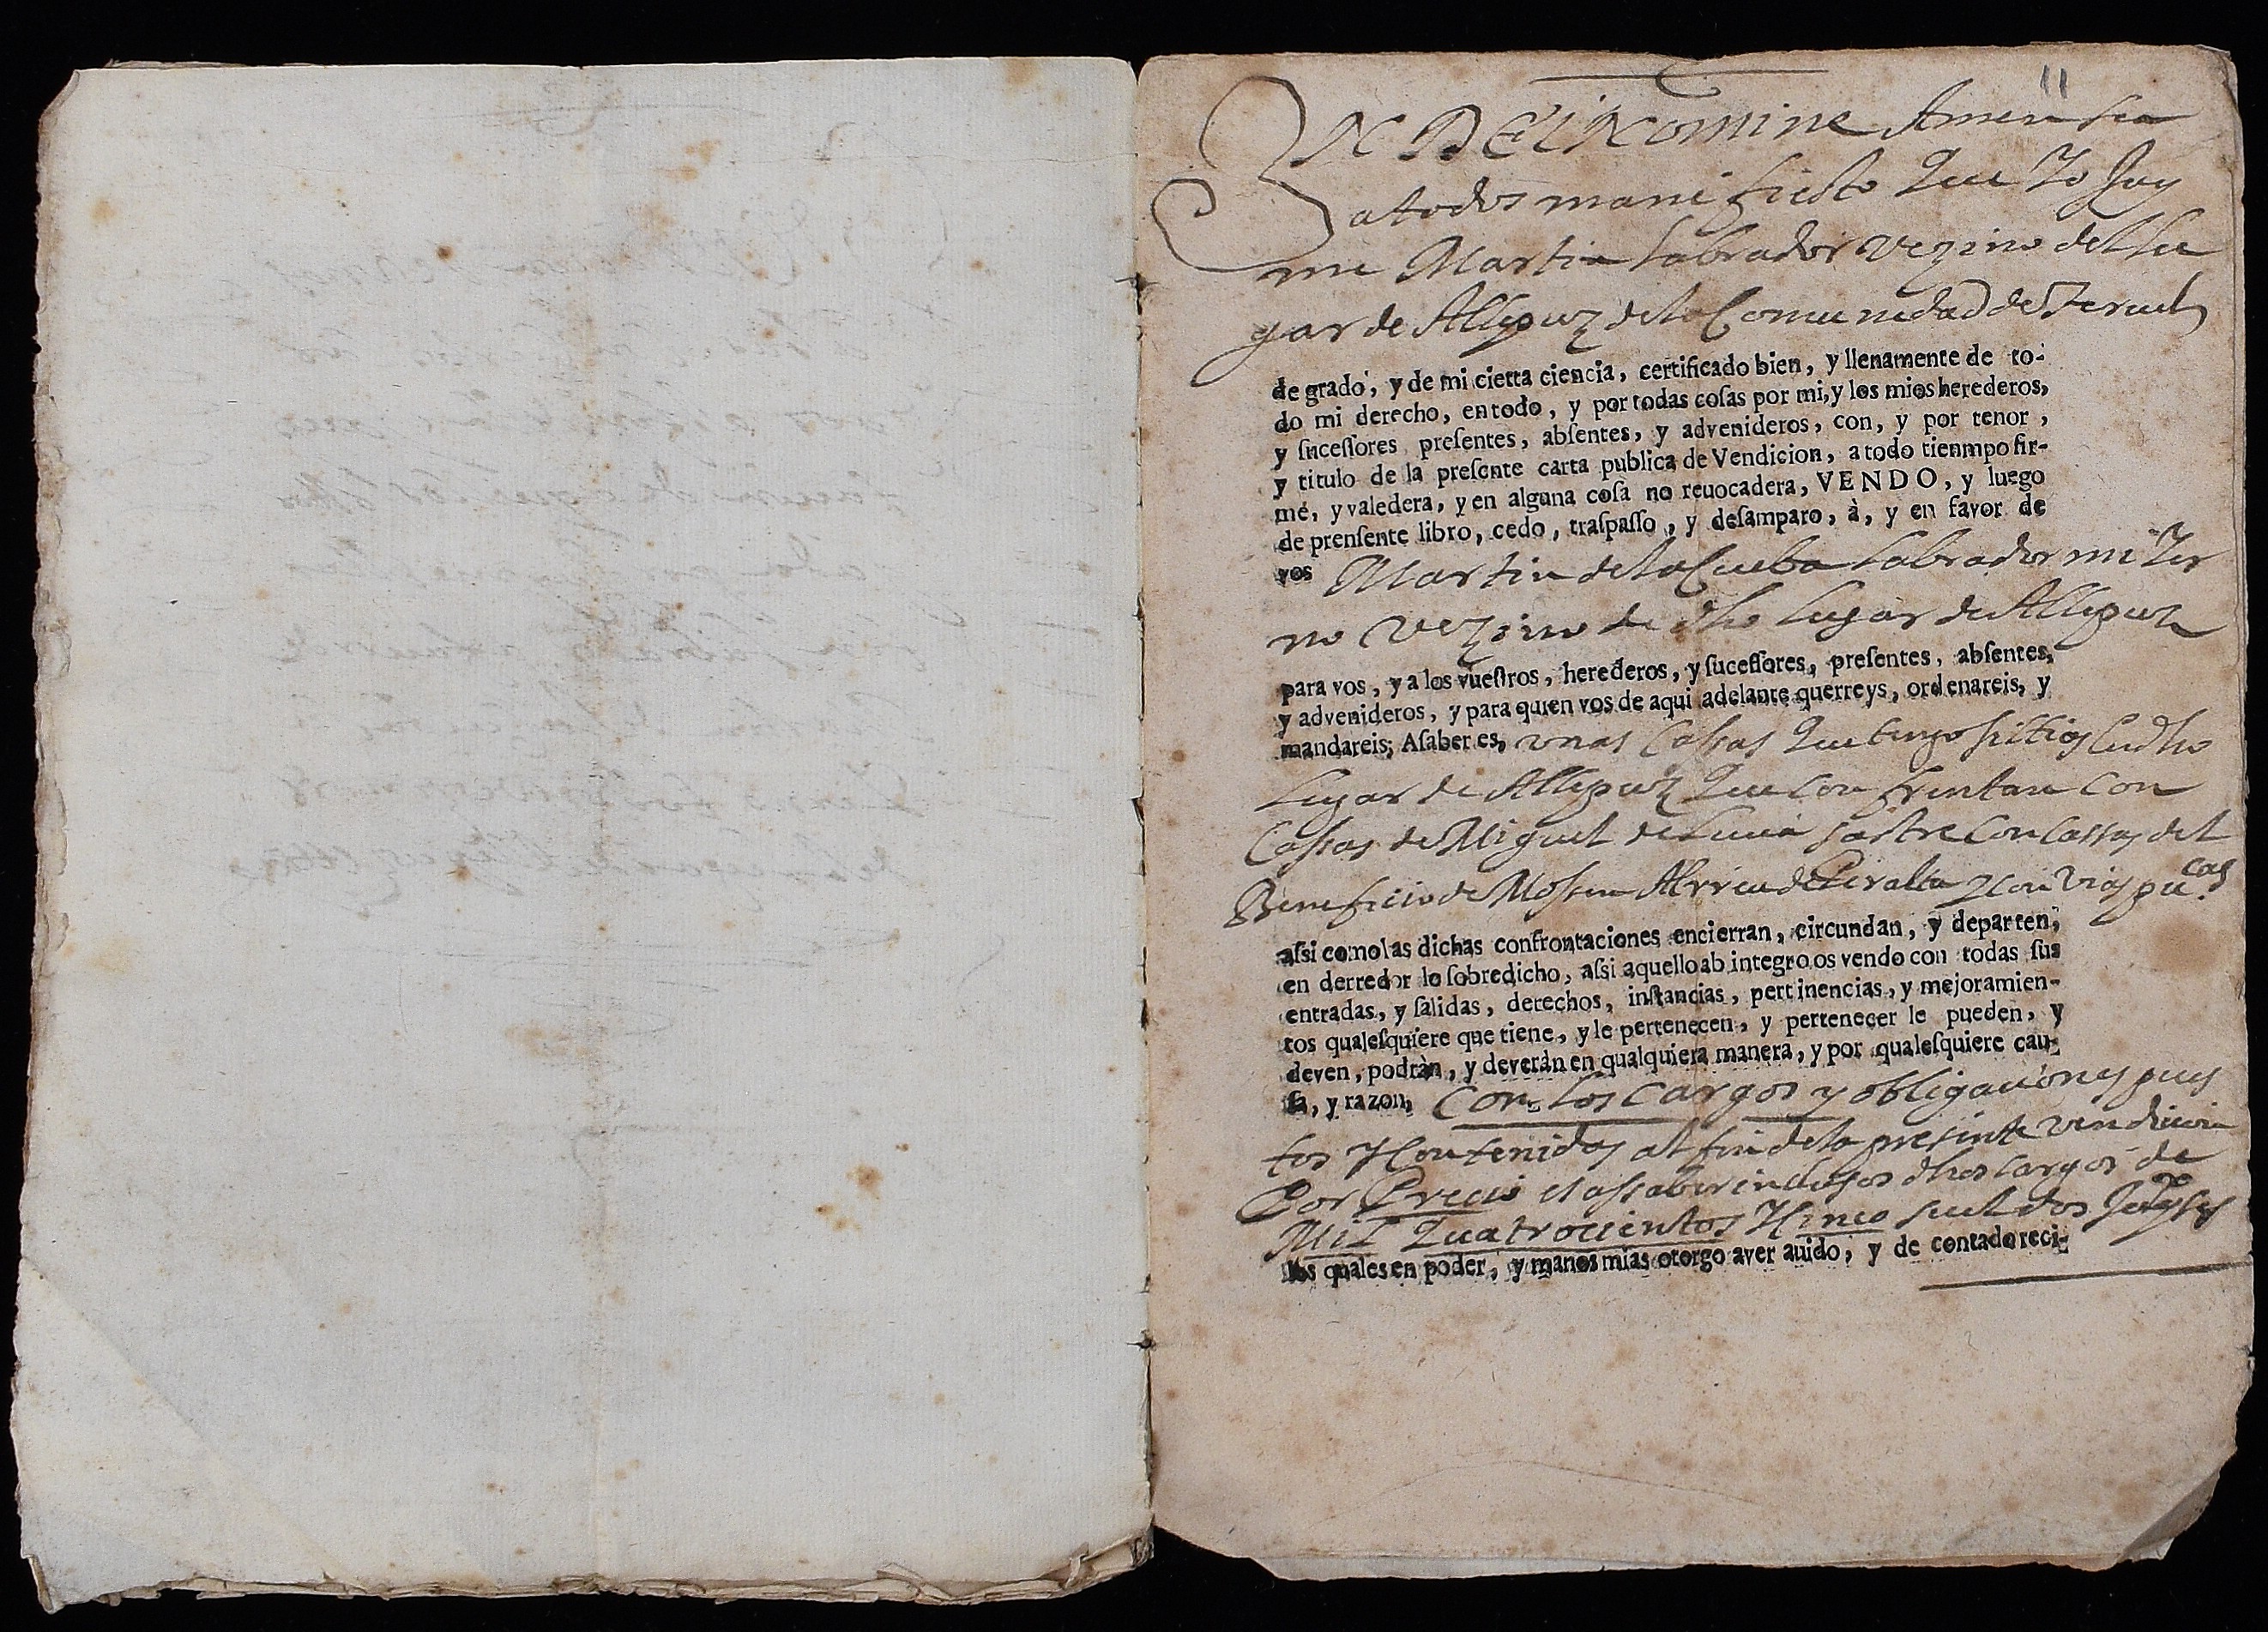 11
IN DEI Nomine Amen sea
a todos manifiesto Que Yo Jay
me Martin labrador vezino del lu
gar de Allepuz dela Comunidad de Teruel
de grado, y de mi cierta ciencia, certificado bien, y llenamente de to-
do mi derecho, en todo, y por todas coſas por mi, y los mios herederos,
y ſuceſſores preſentes, abſentes, y advenideros, con, y por tenor,
y titulo de la preſente carta publica de Vendicion, a todo tienmpo fir-
me, y valedera, y en alguna coſa no reuocadera, VENDO, y luego
de prenſente libro, cedo, traſpaſſo, y deſamparo, à, y en favor de
vos Martin dela Cueba labrador mi Yer
no vezino de dho lugar de Allepuz
para vos, y a los vueſtros, herederos, y ſuceſſores, preſentes, abſentes,
y advenideros, y para quien vos de aqui adelante querreys, ordenareis, y
mandareis; Aſaber es, unas Cassas Que tengo sittias en dho
lugar de Allepuz Que con frentan con
Cassas de Miguel de Luna sastre con Cassas del
Beneficio de Mossen de Peralta y con Vias pu.cas
aſsi como las dichas confrontaciones encierran, circundan, y departen,
en derredor lo ſobredicho, aſsi aquello ab integro os vendo con todas ſus
entradas, y ſalidas, derechos, inſtancias, pertinencias, y mejoramien-
tos qualeſquiere que tiene, y le pertenecen, y pertenecer le pueden, y
deven, podràn, y deveràn en qualquiera manera, y por qualeſquiere cau-
ſa, y razon, Con los cargos y obligaciones pues
tos Y Contenidos al fin dela presente vendicion
Por Precio es assaber inclusos dhos cargos de
Mil Quatrocientos Y Cinco sueldos Jaqses
los quales en poder, y manos mias otorgo aver auido, y de contado reci-